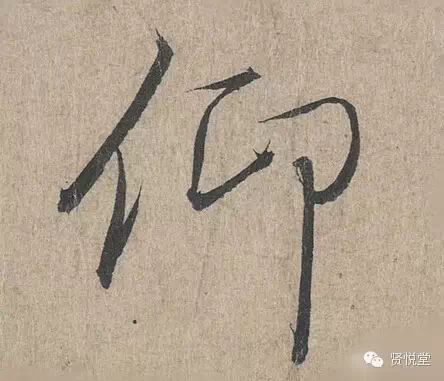 仰
贤悦堂